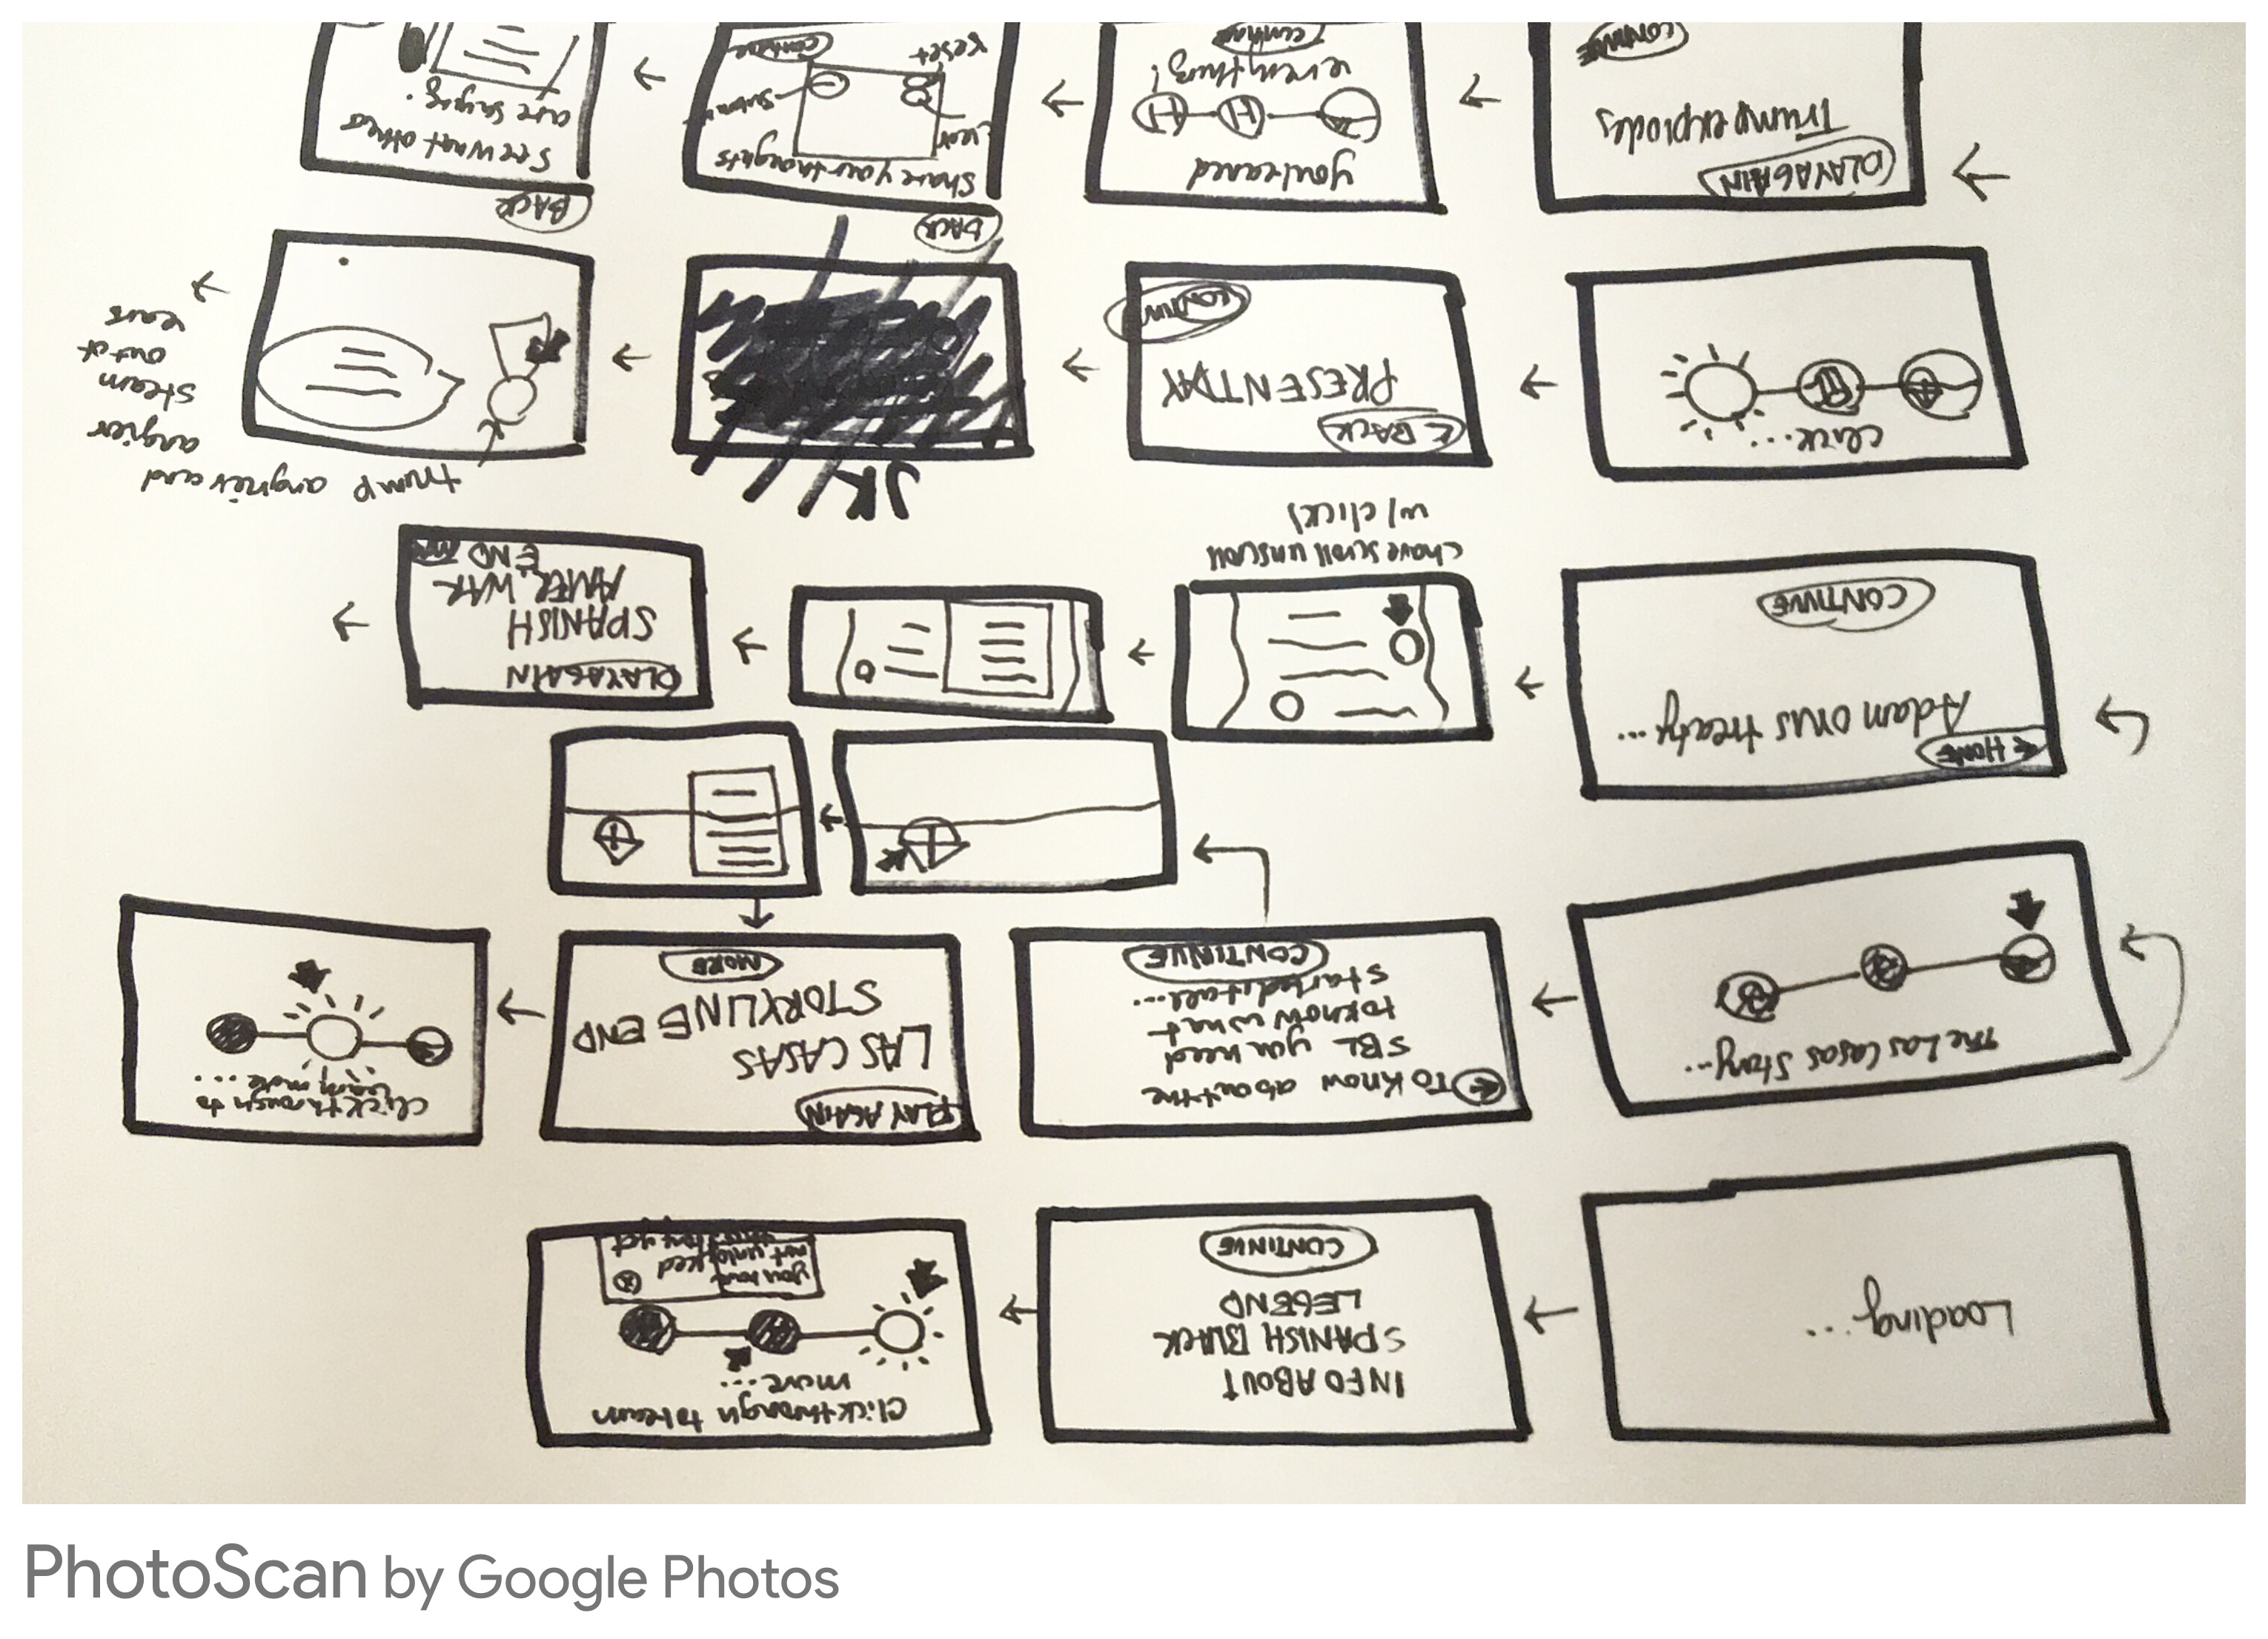 PhotoScan by Google Photos
Loading...
INFO ABOUT
SPANISH BLACK
LEGEND
CONTINUE
Click through to learn
more...
you have
not unlocked
this story yet
The Las Casas Story...
To know about the
SBL you need
to know what
started it all...
CONTINUE
PLAY AGAIN
LAS CASAS
STORYLINE END
MORE
Click through to
learn more...
← HOME
Adam onus treaty...
CONTINUE
(have scroll unscroll
w/ click)
PLAY AGAIN
SPANISH
AMER. WAR
END
click...
← BACK
PRESENT DAY
CONTINUE
JK
trump angrier and
angier
steam
out of
ears
PLAY AGAIN
Trump explodes
CONTINUE
you leaned
everything!
continue
BACK
Share your thoughts
clear
submit
reset
continue
BACK
See what others
are saying.